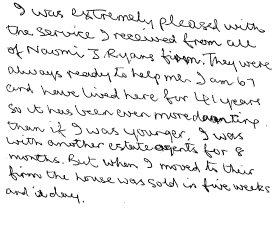 I was extremely pleased with
the service I received from all
of Naomi J Ryans firm. They were
always ready to help me. I am 67
and have lived here for 41 years
so it has been even more daunting
than if I was younger. I was
with another estate agents for 8
months. But when I moved to this
firm the house was sold in five weeks
and a day.